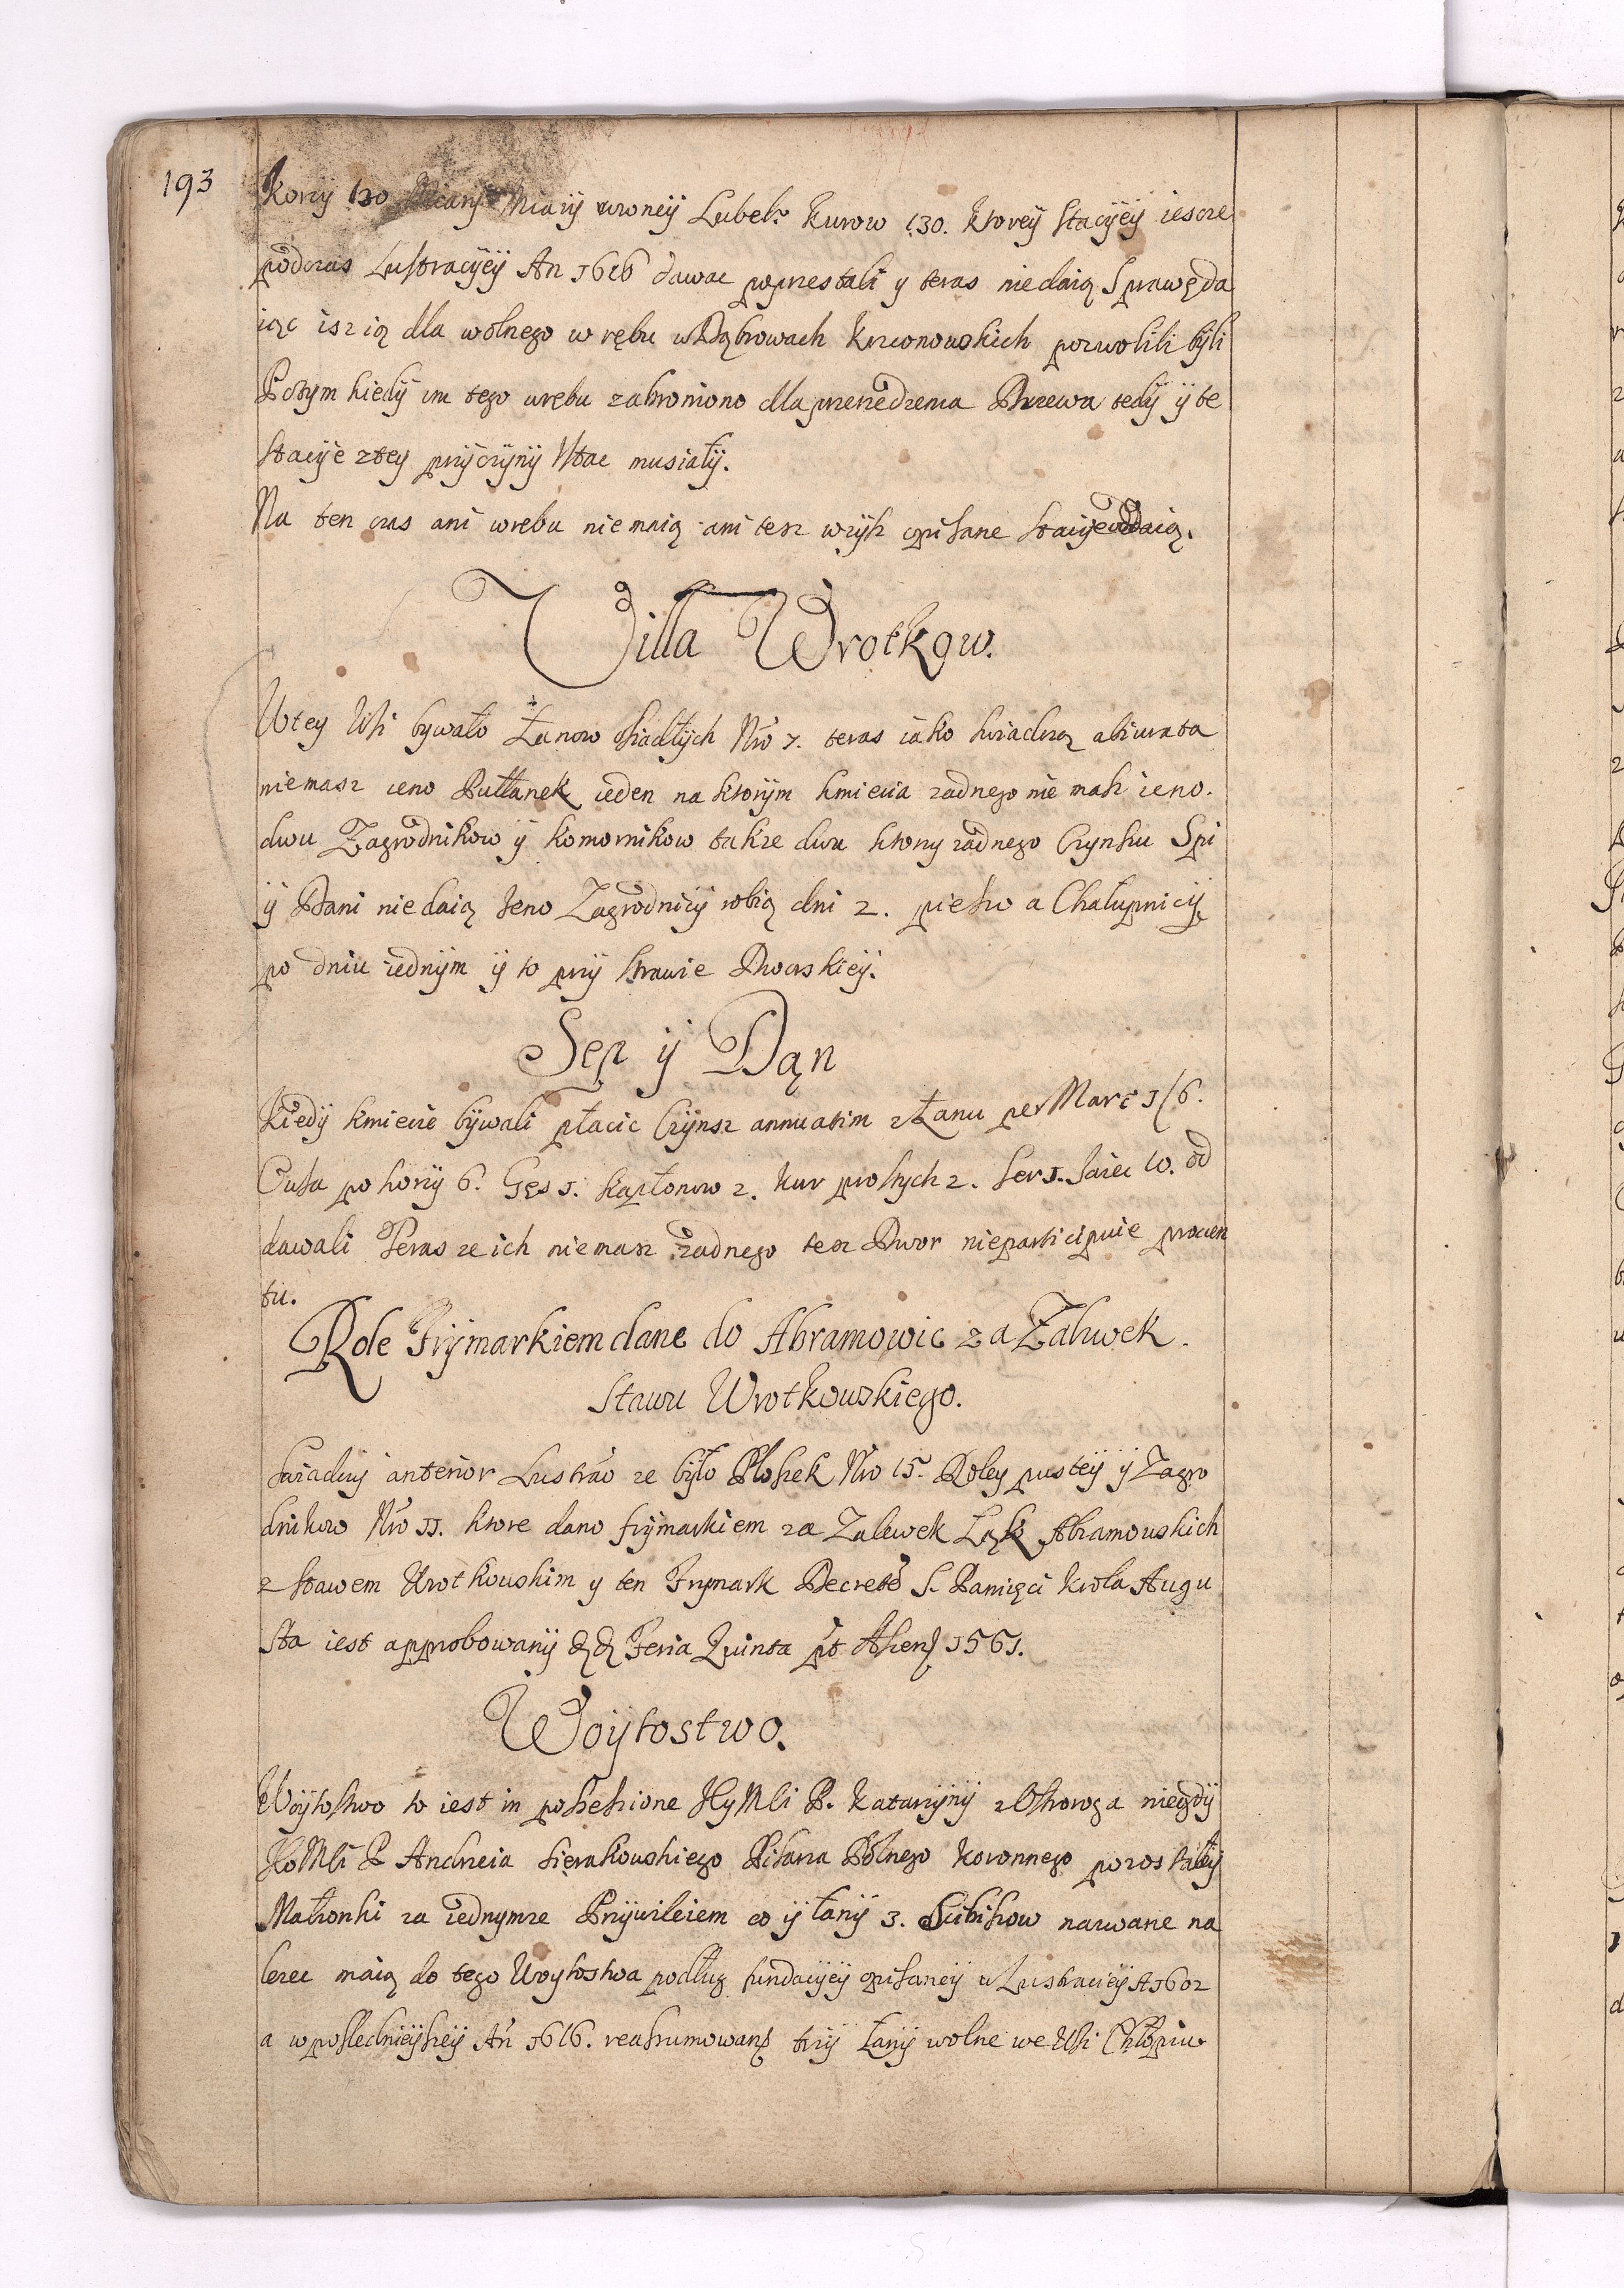 193
Korcy 130 Miary Miary rowney Lubel: Kurow 130. Ktorey Stacyey iescze
podczas Lustracyey An 1616 dawac poprzestali y teras niedaią Sprawęda
iąc isz ią dla wolnego wrębu w Dąbrowach Krzconowskich pozwolili byli
Potym kiedy im tego wrębu zabroniono dla przerzedzenia Drzewa tedy y te
stacye ztey przyczyny Ustac musiały.
Na ten czas ani wrebu niemaią ani tesz wzysz opisane Stacye oddaią.
Villa Wrotkow.
Wtey Wsi bywało Łanow osiadłych Nro 7. teras iako swiadczą abiurata
niemasz ieno Pułłanek ieden na ktorym kmiecia zadnego nie masz ieno.
dwu Zagrodnikow y komornikow takze dwu ktorzy zadnego Czynszu Spi
y Dani niedaią Jeno Zagrodnicy robią dni 2. pieszo a Chałupnicy
po dniu iednym y to przy strawie Dworskiey.
Sep y Dąn
Kiedy kmiecie bywali płacic Czynsz annuatim z Łanu per Marc 1/6.
Owsa po korcy 6. Gęs 1. kapłonow 2. kur prostych 2. Ser 1. Jaiec 10. od
dawali Teras ze ich niemasz zadnego tesz Dwor nieparticipuie prowen
tu.
Role Frymarkiem dane do Abramowic za Zalewek.
Stawu Wrotkowskiego.
Swiadczy anterior Lustrao ze było Płosek Nro 15. Roley pustey y Zagro
dnikow Nro 11. ktore dano frymarkiem za Zalewek Łąk Abramowskich
z stawem Wrotkowskim y ten Frymark Decreto S. Pamięci Krola Augu
sta iest approbowany Feria Quinta 1561.
Woytostwo.
Woytostwo to iest in possessione JeyMści P. Katarzyny z Ostroroga niegdy
JoMści P Andrzeia Sierakowskiego Pisarza Polnego koronnego pozostałey
Małzonki za iednymze Przywileiem co y łany 3. Scibiszow nazwane na
lezec maią do tego Woytostwa podług fundacyey opisaney w Lustracyey A 1602
a wposlednieyszey An 1616. reassumowaney trzy Łany wolne we Wsi